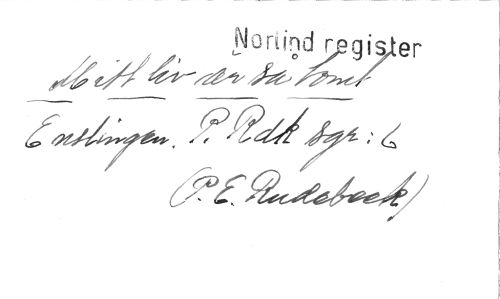 Norlind register
Mitt liv är så tomt
Enslingen. P. Rdk sgr: 6
(P. E. Rudebeck)